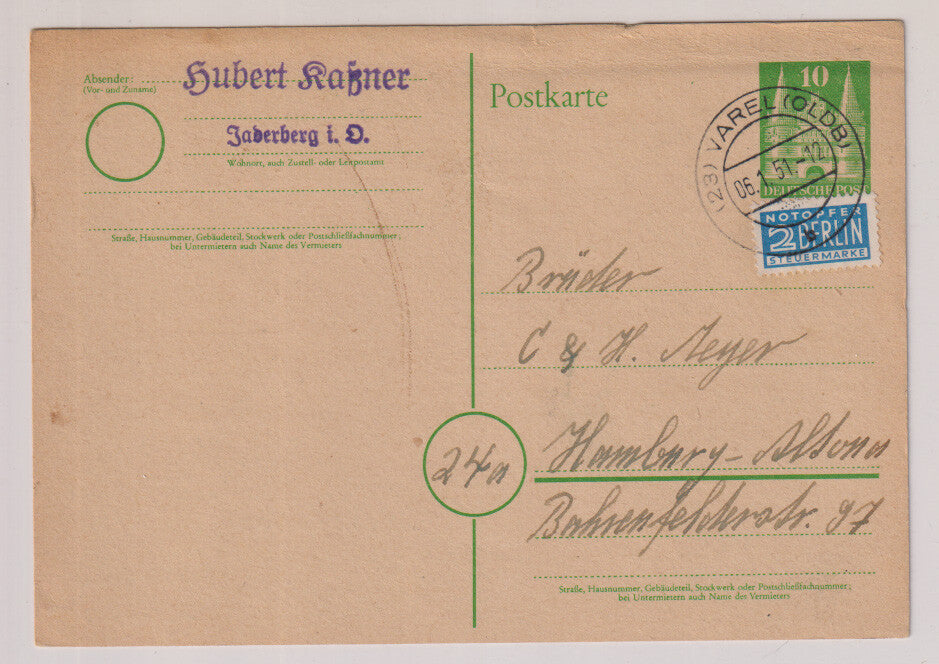 Absender:
(Vor- und Zuname)
Hubert Kaßner
Jaderberg i. O.
Wohnort, auch Zustell- oder Leitpostamt
Straße, Hausnummer, Gebäudeteil, Stockwerk oder Postschließfachnummer;
bei Untermietern auch Name des Vermieters
Postkarte
10
DEUTSCHE POST
(23) VAREL (OLDB)
06.1.51.-12
NOTOPFER
2 BERLIN
STEUERMARKE
Brüder
C & H. Meyer
24a
Hamburg-Altona
Bahrenfelderstr. 97
Straße, Hausnummer, Gebäudeteil, Stockwerk oder Postschließfachnummer;
bei Untermietern auch Name des Vermieters